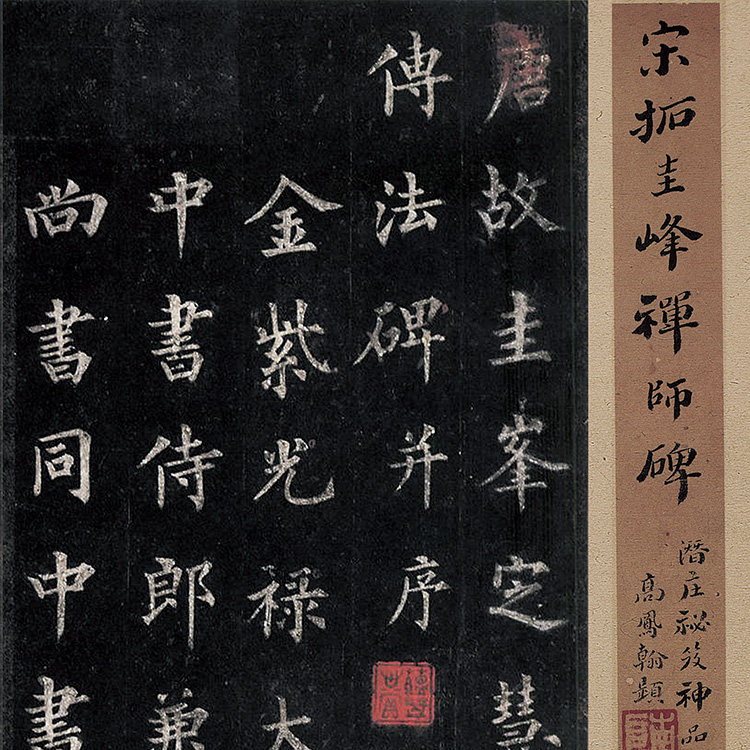 宋拓圭峰禪師碑
潛莊祕笈神品
高鳳翰題
唐故圭峯定慧
傳法碑并序
金紫光禄大
中書侍郎兼
尚書同中書